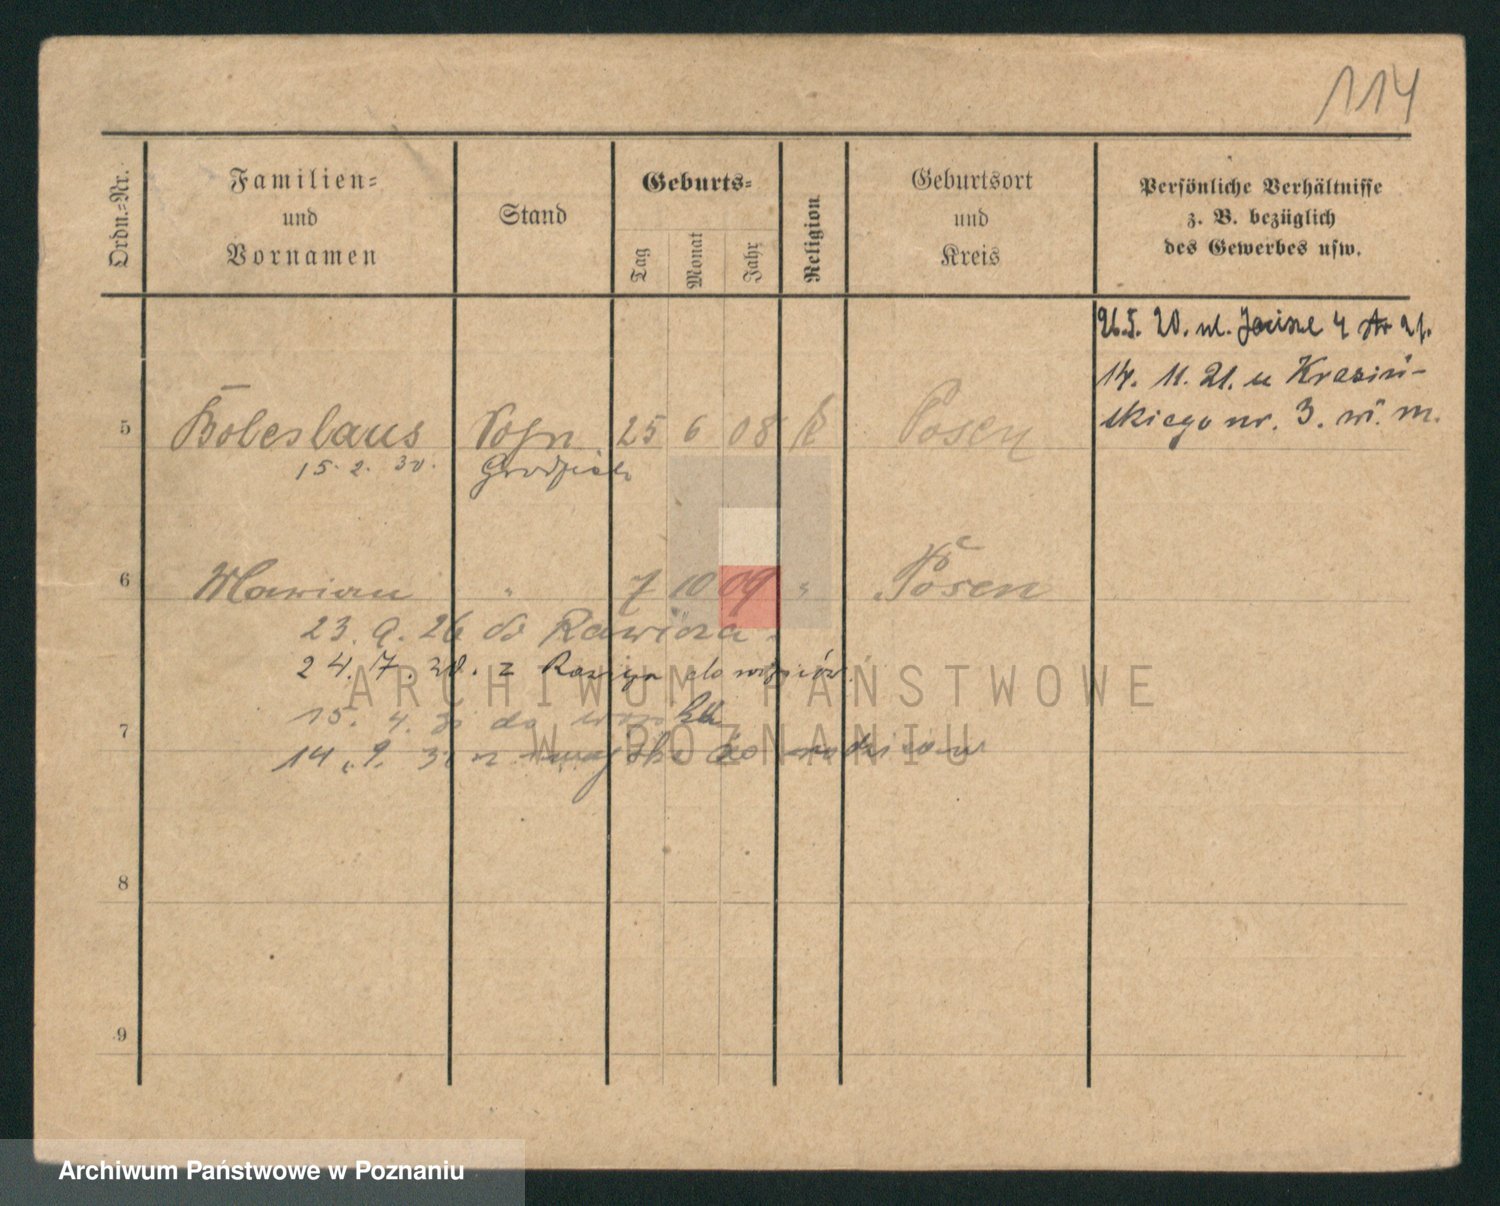 114
Ordn.-Nr.
Familien-
und
Vornamen
Stand
Geburts-
Tag
Monat
Jahr
Religion
Geburtsort
und
Kreis
Persönliche Verhältnisse
z. B. bezüglich
des Gewerbes usw.
26.5. 20. ul. 4
14. 11. 21. u Krasiń-
skiego nr. 3. w. m.
5 Boleslaus 25 6 08 k Posen
15. 2. 30.
6 Marian " 7 10 09 " Posen
23. 9. 26 do Rawicza
24. 7. z
7
15. 4. do wojska
14. 9. do
8
9
ARCHIWUM PAŃSTWOWE
W POZNANIU
Archiwum Państwowe w Poznaniu